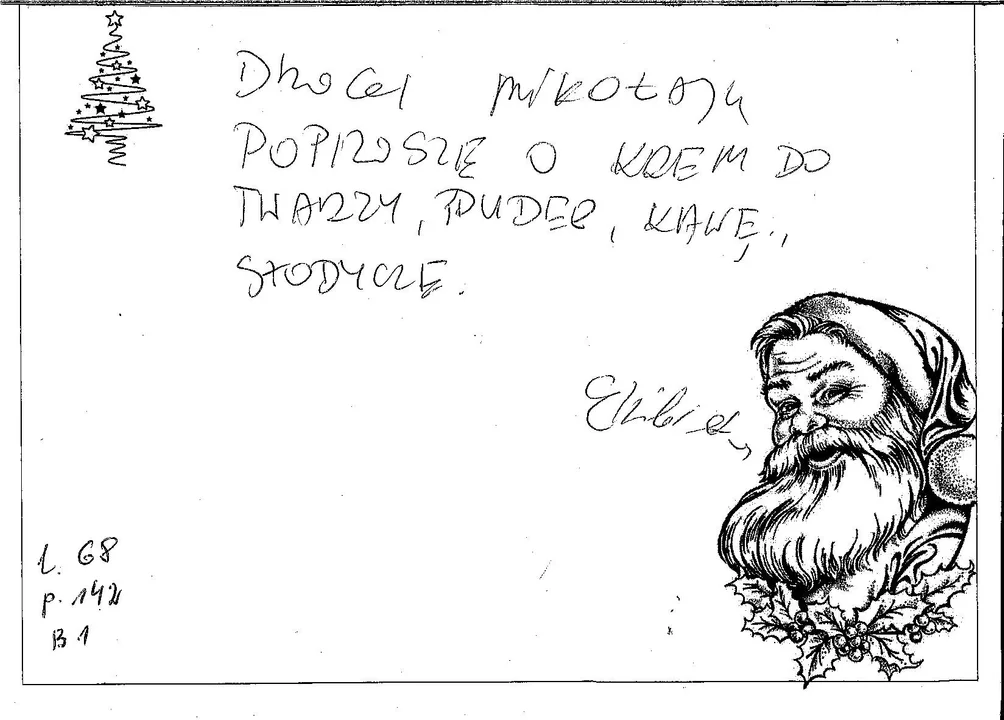 Drogi Mikołaju
POPROSZĘ O KREM DO
TWARZY, PUDER, KAWĘ.,
SŁODYCZE.
Elżbieta
L. 68
p. 142
B 1